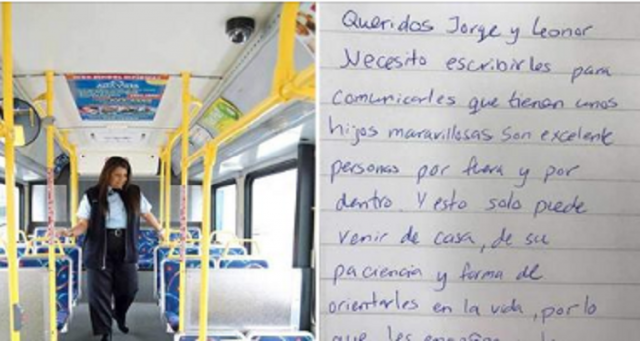 Queridos Jorge y Leonor
Necesito escribirles para
comunicarles que tienen unos
hijos maravillosas son excelente
personas por fuera y por
dentro. Y esto solo puede
venir de casa, de su
paciencia y forma de
orientarles en la vida, por lo
que les